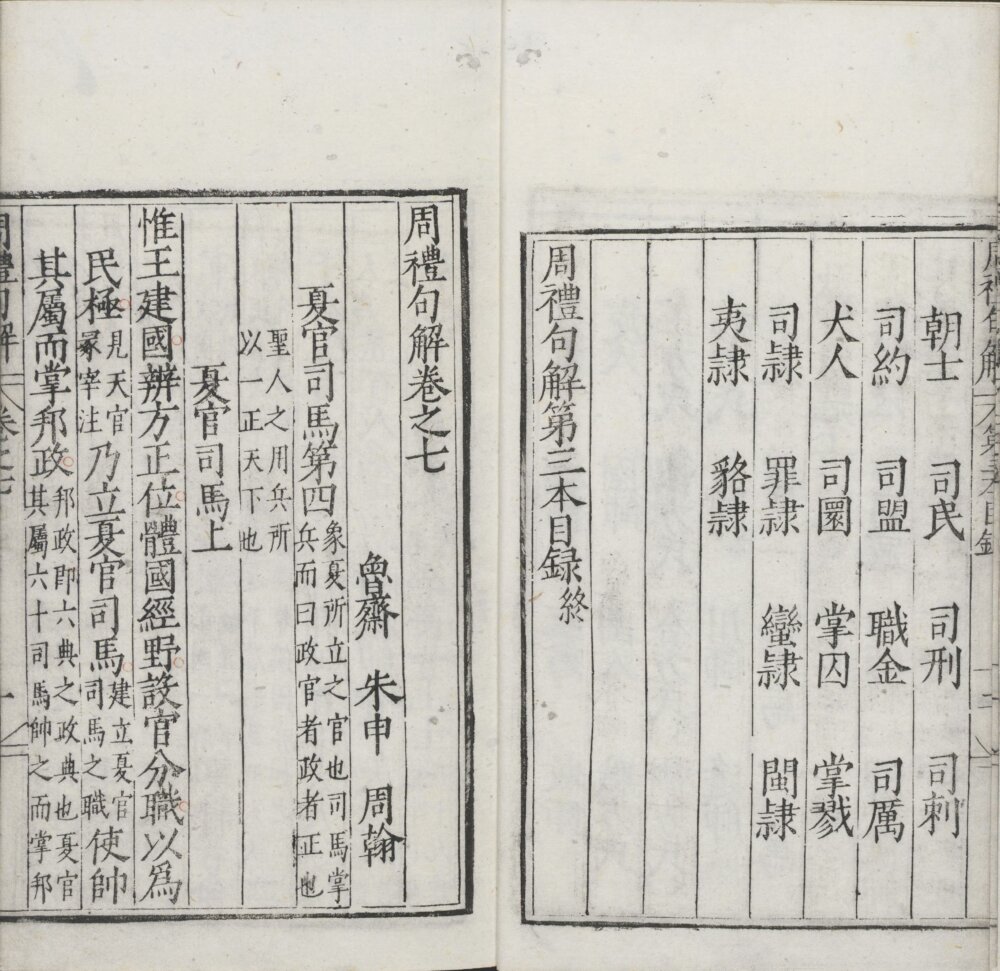 朝士 司民 司刑 司刺
司約 司盟 職金 司厲
犬人 司圜 掌囚 掌戮
司隸 罪隸 蠻隸 閩隸
夷隸 貉隸
周禮句解第三本目録終
周禮句解卷之七
魯齋 朱申 周翰
夏官司馬第四象夏所立之官也司馬掌兵而曰政官者政者正也
聖人之用兵所以一正天下也
夏官司馬上
惟王建國辨方正位體國經野設官分職以爲
民極見天官冢宰注乃立夏官司馬建立夏官司馬之職使帥
其屬而掌邦政邦政即六典之政典也夏官其屬六十司馬帥之而掌邦
周禮句解 卷之七 一